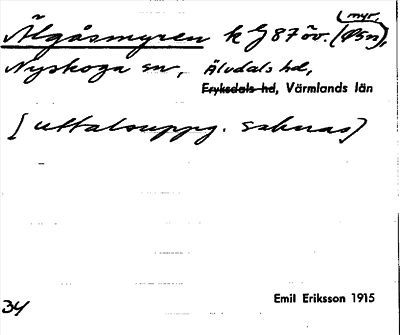 myr.
Älgåsmyren k J 87 öv. (Ösn),
Nyskoga sn, Älvdals hd,
Fryksdals hd, Värmlands län
[uttalsuppg. saknas]
Emil Eriksson 1915
34